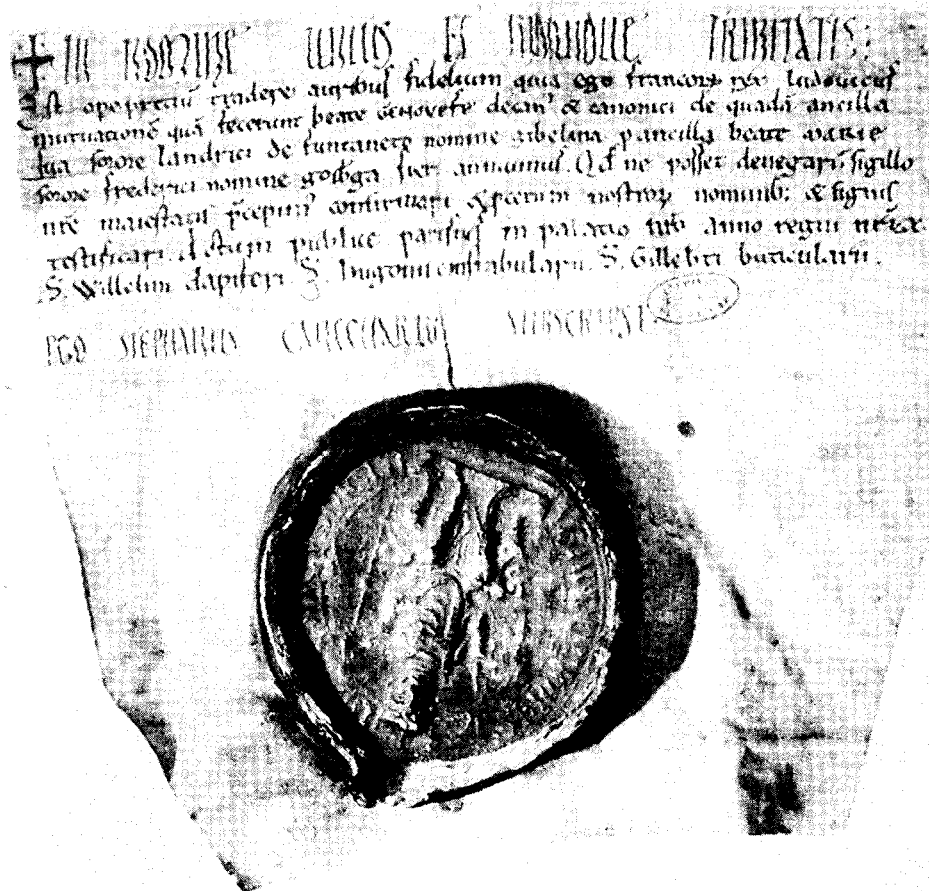 ✝ IN NOMINE SANCTĘ ET INDIVIDUĘ TRINITATIS:
Est operę pretiū tradere auribus fidelium quia ego francorū rex Ludovicus
mutuationē quā fecerunt beate Genovefe decan' & canonici de quadā ancilla
sua sorore Landrici de funtaneto nomine Gibelina p ancilla beate Marie
sorore frederici nomine fier annuimus. Qd ne posset denegari sigillo
nrē maiestatis p̄cepim' confirmari & p̄cerum nostrorꝝ nominib; & signis
testificari. Actum publice parisius in palatio anno regni nr̄i
S. Willelmi dapiferi S. hugonis constabularii. S. Gilleb̄ti buticularii.
EGO STEPHANUS CANCELLARIUS SUBSCRIPSI